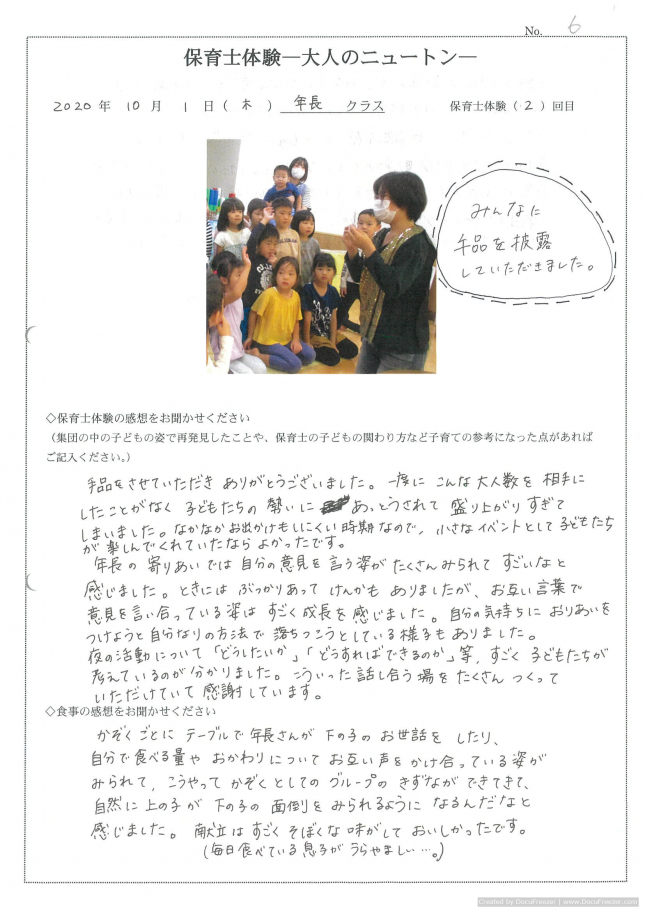 No. 6
保育士体験―大人のニュートン―
2020 年 10 月 1 日 ( 木 ) 年長 クラス 保育士体験 ( 2 ) 回目
みんなに
手品を披露
していただきました。
◇保育士体験の感想をお聞かせください
（集団の中の子どもの姿で再発見したことや、保育士の子どもの関わり方など子育ての参考になった点があれば
ご記入ください。）
手品をさせていただき ありがとうございました。一度に こんな大人数を 相手に
したことがなく 子どもたちの 勢いに あっとうされて 盛り上がり すぎて
しまいました。なかなかお出かけもしにくい時期なので、小さなイベントとして子どもたち
が 楽しんでくれていたなら よかったです。
年長の 寄りあいでは 自分の意見を 言う姿が たくさんみられて すごいなと
感じました。ときには ぶっかりあって けんかも ありましたが、お互い言葉で
意見を言い合っている姿は すごく成長を 感じました。自分の気持ちに おりあいを
つけようと自分なりの方法で 落ちつこうとしている様子もありました。
夜の活動について「どうしたいか」「どうすればできるのか」等、すごく 子どもたちが
考えているのが分かりました。こういった 話し合う 場を たくさん つくって
いただけていて 感謝しています。
◇食事の感想をお聞かせください
かぞくごとに テーブルで 年長さんが 下の子の お世話を したり、
自分で食べる量や おかわりについて お互い声を かけ合っている 姿が
みられて、こうやって かぞくとしての グループの きずなが できてきて、
自然に 上の子が 下の子の 面倒を みられるように なるんだなと
感じました。 献立は すごく そぼくな 味がして おいしかったです。
（毎日食べている 息子が うらやましい…。）
Created by DocuFreezer | www.DocuFreezer.com